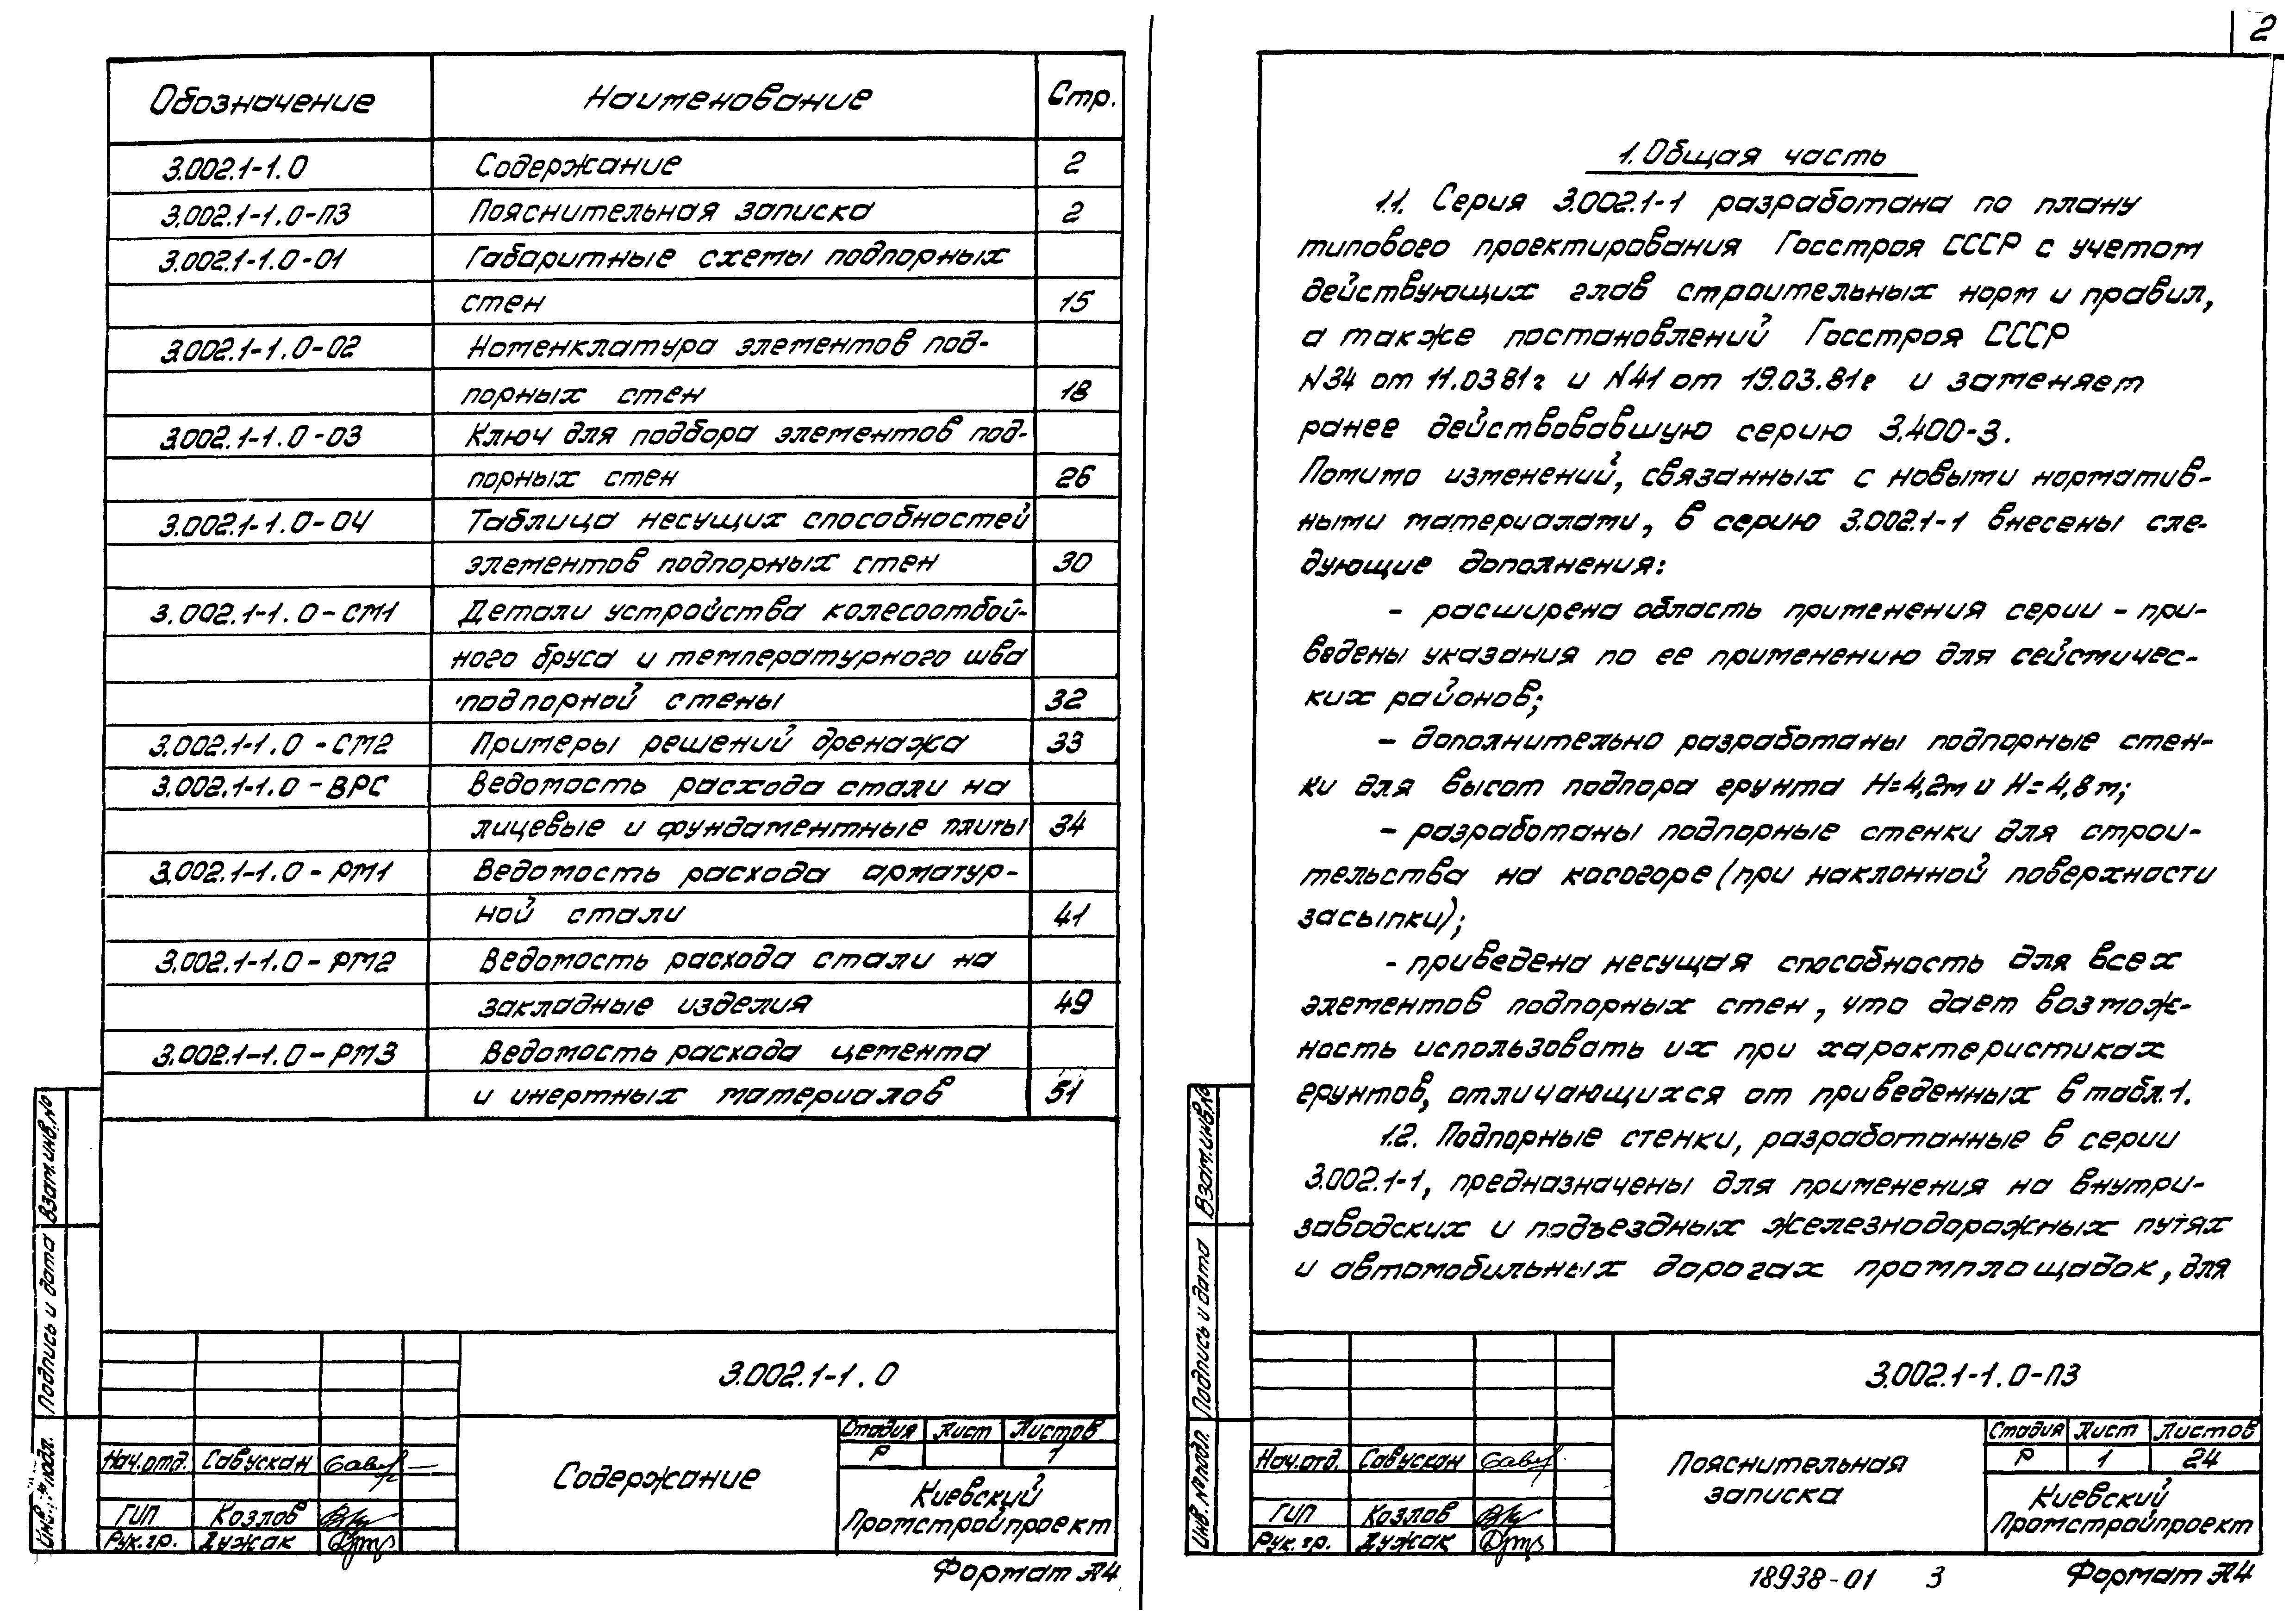 2
Обозначение Наименование Стр.
3.002.1-1.0 Содержание 2
3.002.1-1.0-ПЗ Пояснительная записка 2
3.002.1-1.0-01 Габаритные схемы подпорных
стен 15
3.002.1-1.0-02 Номенклатура элементов под-
порных стен 18
3.002.1-1.0-03 Ключ для подбора элементов под-
порных стен 26
3.002.1-1.0-04 Таблица несущих способностей
элементов подпорных стен 30
3.002.1-1.0-СМ1 Детали устройства колесоотбой-
ного бруса и температурного шва
подпорной стены 32
3.002.1-1.0-СМ2 Примеры решений дренажа 33
3.002.1-1.0-ВРС Ведомость расхода стали на
лицевые и фундаментные плиты 34
3.002.1-1.0-РМ1 Ведомость расхода арматур-
ной стали 41
3.002.1-1.0-РМ2 Ведомость расхода стали на
закладные изделия 49
3.002.1-1.0-РМ3 Ведомость расхода цемента
и инертных материалов 51
Взам.инв.№
Подпись и дата
Инв.№подл.
3.002.1-1.0
Содержание
Стадия Лист Листов
Р 1
Нач.отд. Савускан
ГИП Козлов
Рук.гр. Дужак
Киевский
Промстройпроект
Формат А4
1. Общая часть
1.1. Серия 3.002.1-1 разработана по плану
типового проектирования Госстроя СССР с учетом
действующих глав строительных норм и правил,
а также постановлений Госстроя СССР
№34 от 11.03.81г и №41 от 19.03.81г и заменяет
ранее действовавшую серию 3.400-3.
Помимо изменений, связанных с новыми норматив-
ными материалами, в серию 3.002.1-1 внесены сле-
дующие дополнения:
- расширена область применения серии - при-
ведены указания по ее применению для сейсмичес-
ких районов;
- дополнительно разработаны подпорные стен-
ки для высот подпора грунта Н=4,2м и Н=4,8м;
- разработаны подпорные стенки для строи-
тельства на косогоре (при наклонной поверхности
засыпки);
- приведена несущая способность для всех
элементов подпорных стен, что дает возмож-
ность использовать их при характеристиках
грунтов, отличающихся от приведенных в табл.1.
1.2. Подпорные стенки, разработанные в серии
3.002.1-1, предназначены для применения на внутри-
заводских и подъездных железнодорожных путях
и автомобильных дорогах промплощадок, для
Взам.инв.№
Подпись и дата
Инв.№подл.
3.002.1-1.0-ПЗ
Пояснительная
записка
Стадия Лист Листов
Р 1 24
Нач.отд. Савускан
ГИП Козлов
Рук.гр. Дужак
Киевский
Промстройпроект
18938-01 3 Формат А4